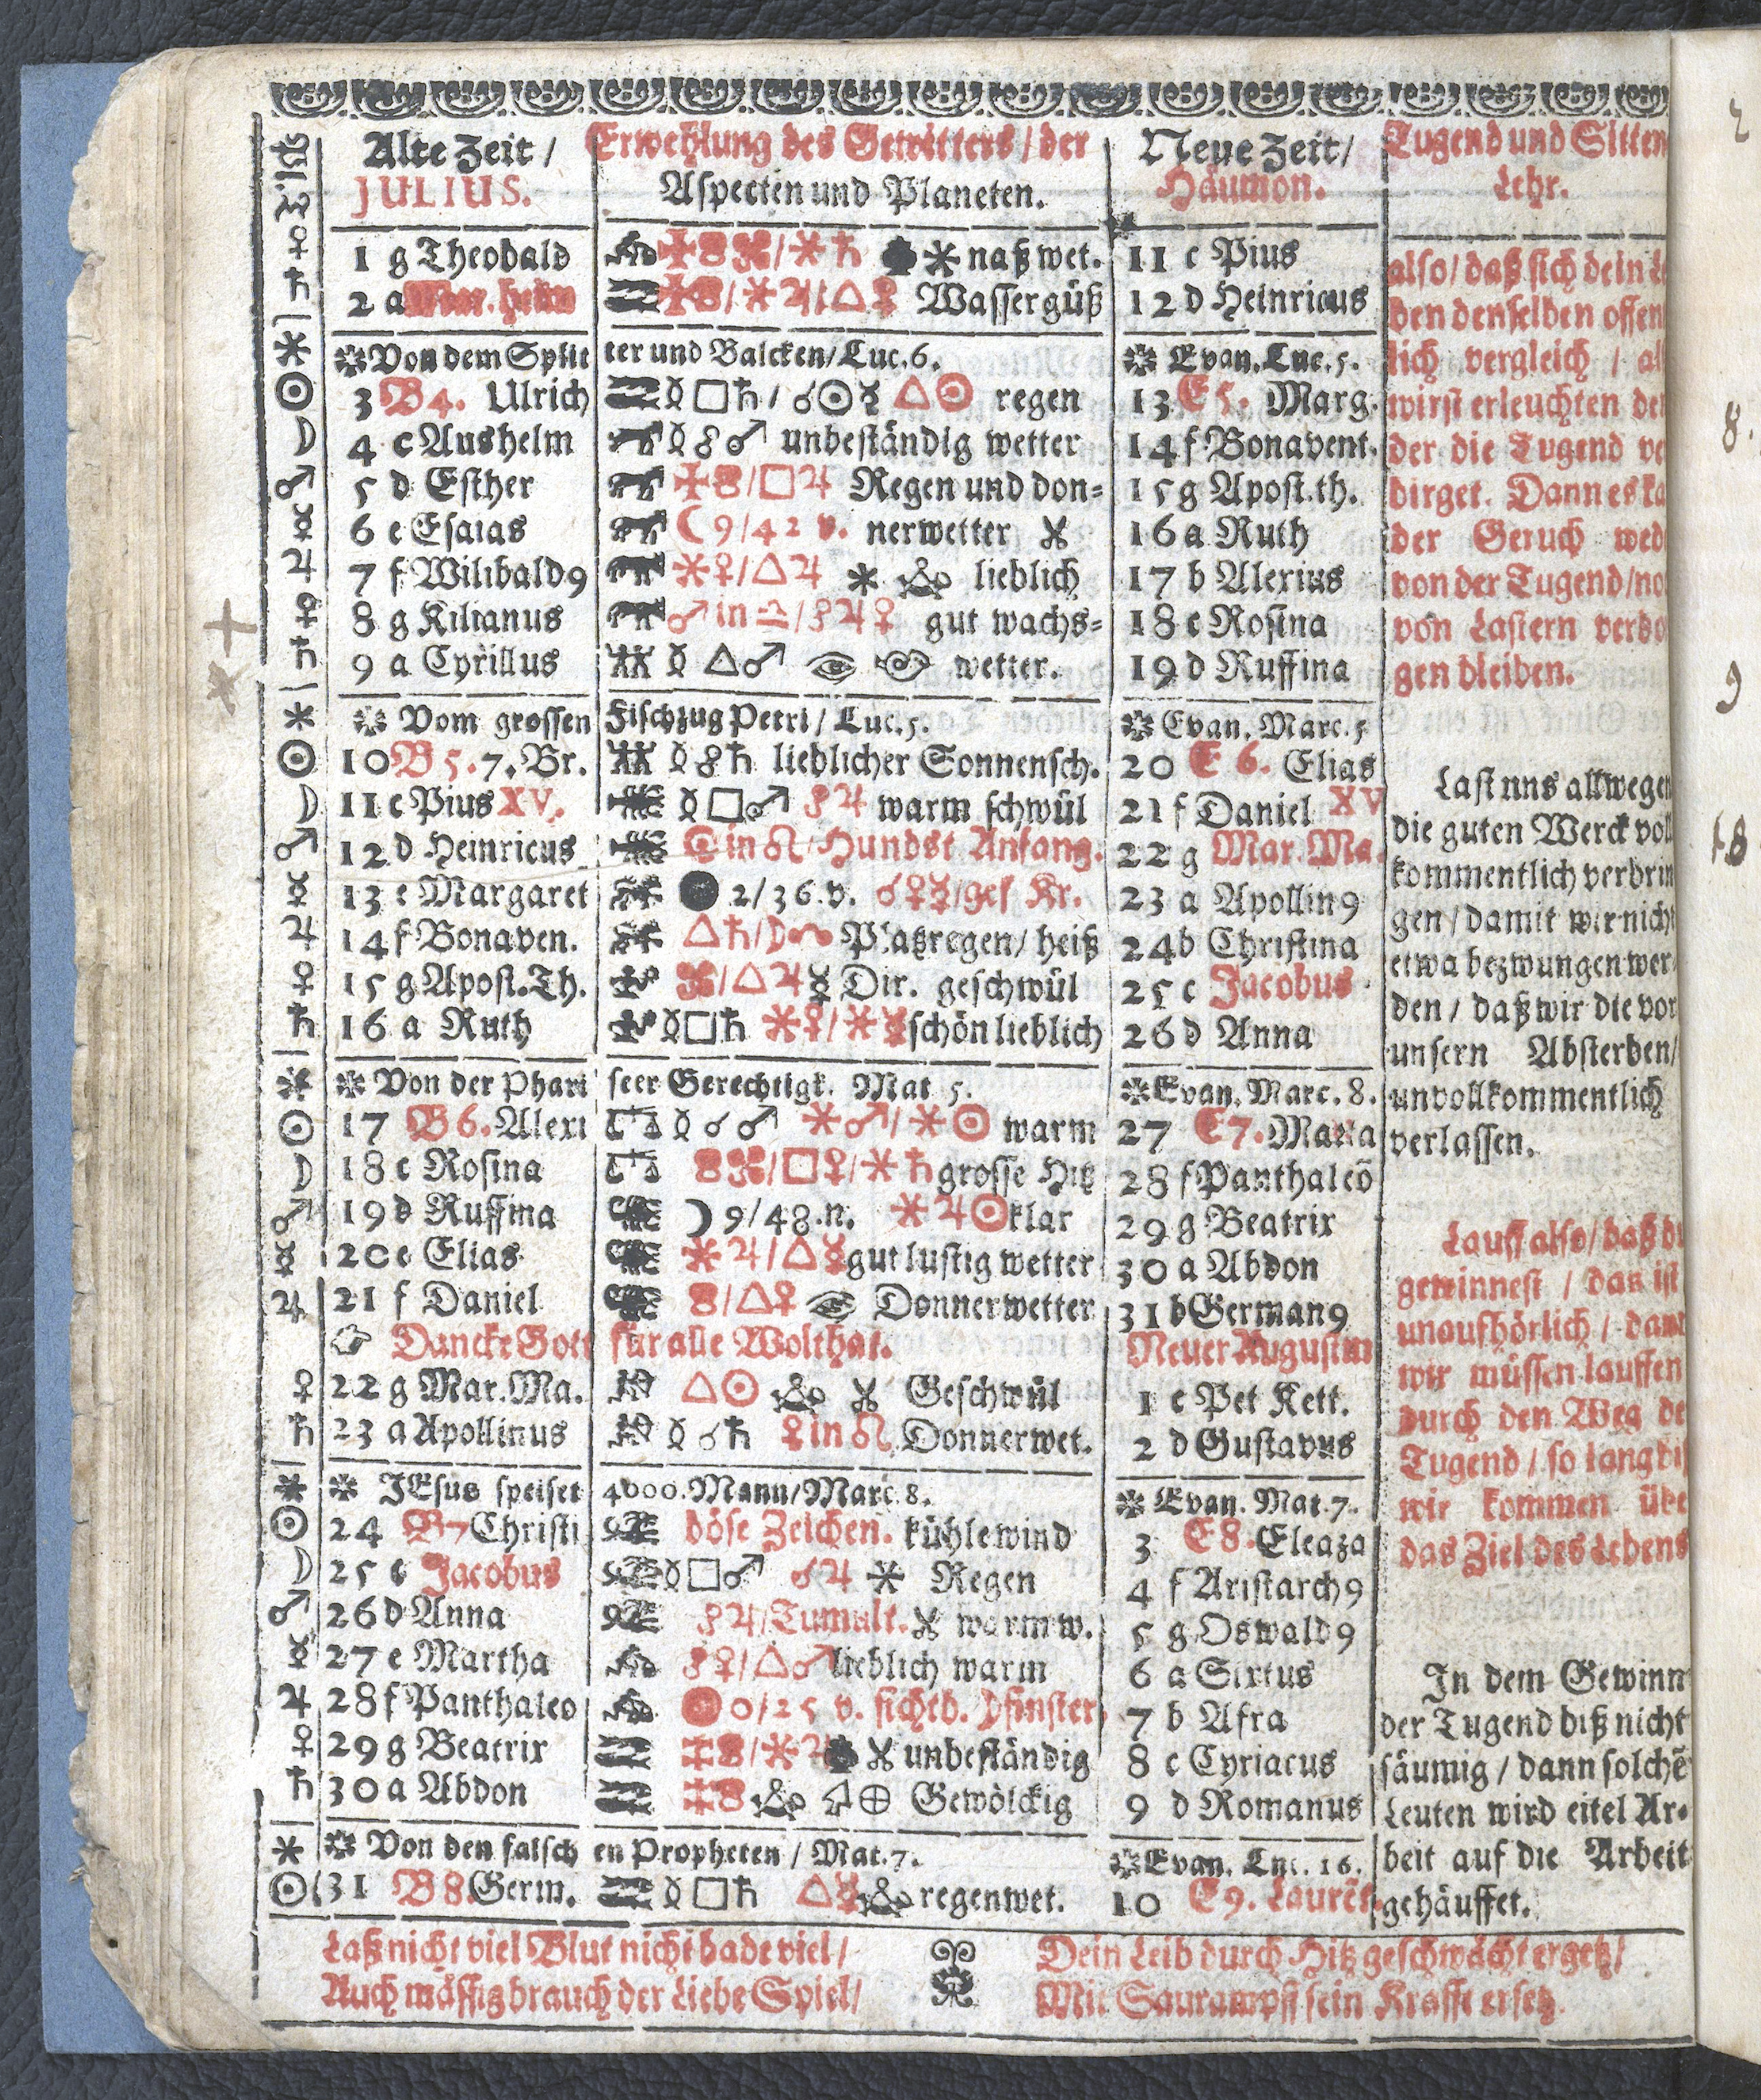 Alte Zeit / Erwehlung des Gewitters / der Neue Zeit / Tugend und Sitten
JULIUS. Aspecten und Planeten. Häumon. Lehr.
♀ 1 g Theobald ✠ / ✶ ♄ ✶ naß wet. 11 c Pius
♄ 2 a Mar. heim / ✶ ♃ / △ ♀ Wassergüß 12 d Heinricus
✶ Von dem Splitter und Balcken / Luc. 6. Evan. Luc. 5.
☉ 3 B 4. Ulrich ☿ □ ♄ / ☌ ☉ ☿ △ ☉ regen 13 E 5. Marg.
☽ 4 c Aushelm ☿ ☍ ♂ unbeständig wetter 14 f Bonavent.
♂ 5 d Esther ✠ / □ ♃ Regen und don= 15 g Apost. th.
☿ 6 e Esaias ☾ 9 / 42 v. nerwetter 16 a Ruth
♃ 7 f Wilibald9 ✶ ♀ / △ ♃ ✶ lieblich 17 b Alexius
♀ 8 g Kilianus ♂ in ♎ / ☍ ♃ ♀ gut wachs= 18 c Rosina
♄ 9 a Cyrillus ☿ △ ♂ wetter. 19 d Ruffina
✶ Vom grossen Fischzug Petri / Luc. 5. Evan. Marc. 5
☉ 10 B 5. 7. Br. ☿ ☍ ♄ lieblicher Sonnensch. 20 E 6. Elias
☽ 11 c Pius XV. ☿ □ ♂ ☍ ♃ warm schwül 21 f Daniel XV
♂ 12 d Heinricus ☉ in ♌ / Hundst Anfang. 22 g Mar. Ma.
☿ 13 e Margaret ● 2 / 36. v. ☌ ♀ ☿ / ges Kr. 23 a Apollin9
♃ 14 f Bonaven. △ ♄ / Platzregen / heiß 24 b Christina
♀ 15 g Apost. Th. / △ ♃ ☿ Dir. geschwül 25 c Jacobus
♄ 16 a Ruth ☿ □ ♄ ✶ ♀ / ✶ ☿ schön lieblich 26 d Anna
✶ Von der Phariseer Gerechtigk. Mat. 5. Evan. Marc. 8.
☉ 17 B 6. Alexi ☿ ☌ ♂ ✶ ♂ / ✶ ☉ warm 27 E 7. Marta
☽ 18 c Rosina / □ ♀ / ✶ ♄ grosse Hitz 28 f Panthaleō
♂ 19 d Ruffina ☽ 9 / 48. n. ✶ ♃ ☉ klar 29 g Beatrix
☿ 20 e Elias ✶ ♃ / △ ☿ gut lustig wetter 30 a Abdon
♃ 21 f Daniel / △ ♀ Donnerwetter 31 b German9
Dancke Gott für alle Wolthat. Neuer Augustm
♀ 22 g Mar. Ma. △ ☉ Geschwül 1 c Pet Kett.
♄ 23 a Apollinus ☿ ☌ ♄ ♀ in ♌ Donnerwet. 2 d Gustavus
✶ JEsus speiset 4000. Mann / Marc. 8. Evan. Mat. 7.
☉ 24 B 7 Christi böse Zeichen. kühle wind 3 E 8. Eleaza
☽ 25 c Jacobus ☿ □ ♂ ☌ ♃ ✶ Regen 4 f Aristarch9
♂ 26 d Anna ☍ ♃ / Tumult. warm w. 5 g Oswald9
☿ 27 e Martha ☍ ♀ / △ ♂ lieblich warm 6 a Sixtus
♃ 28 f Panthaleo 0 / 25 v. sichtb. ☽ finster 7 b Afra
♀ 29 g Beatrix / ✶ ♃ unbeständig 8 c Cyriacus
♄ 30 a Abdon ⊕ Gewölckig 9 d Romanus
✶ Von den falschen Propheten / Mat. 7. Evan. Luc. 16.
☉ 31 B 8. Germ. ☿ □ ♄ △ ☿ regenwet. 10 E 9. Laurēt.
also / daß sich dein Le
den denselben offen
lich vergleich / al
wirst erleuchten der
der die Tugend ve
birget. Dann es ka
der Geruch wed
von der Tugend / no
von Lastern verbo
gen bleiben.
Last uns allwegen
die guten Werck voll
kommentlich verbrin
gen / damit wir nicht
etwa bezwungen wer
den / daß wir die vor
unsern Absterben /
unvollkommentlich
verlassen.
Lauff also / daß du
gewinnest / das ist
unaufhörlich / dann
wir müssen lauffen
durch den Weg de
Tugend / so lang biß
wir kommen übe
das Ziel des Lebens
In dem Gewinn
der Tugend biß nicht
säumig / dann solchē
Leuten wird eitel Ar=
beit auf die Arbeit
gehäuffet.
Laß nicht viel Blut nicht bade viel /
Auch mässig brauch der Liebe Spiel /
Dein Leib durch Hitz geschwächt ergetz /
Mit Saurampff sein Krafft ersetz.
2
8.
9
18